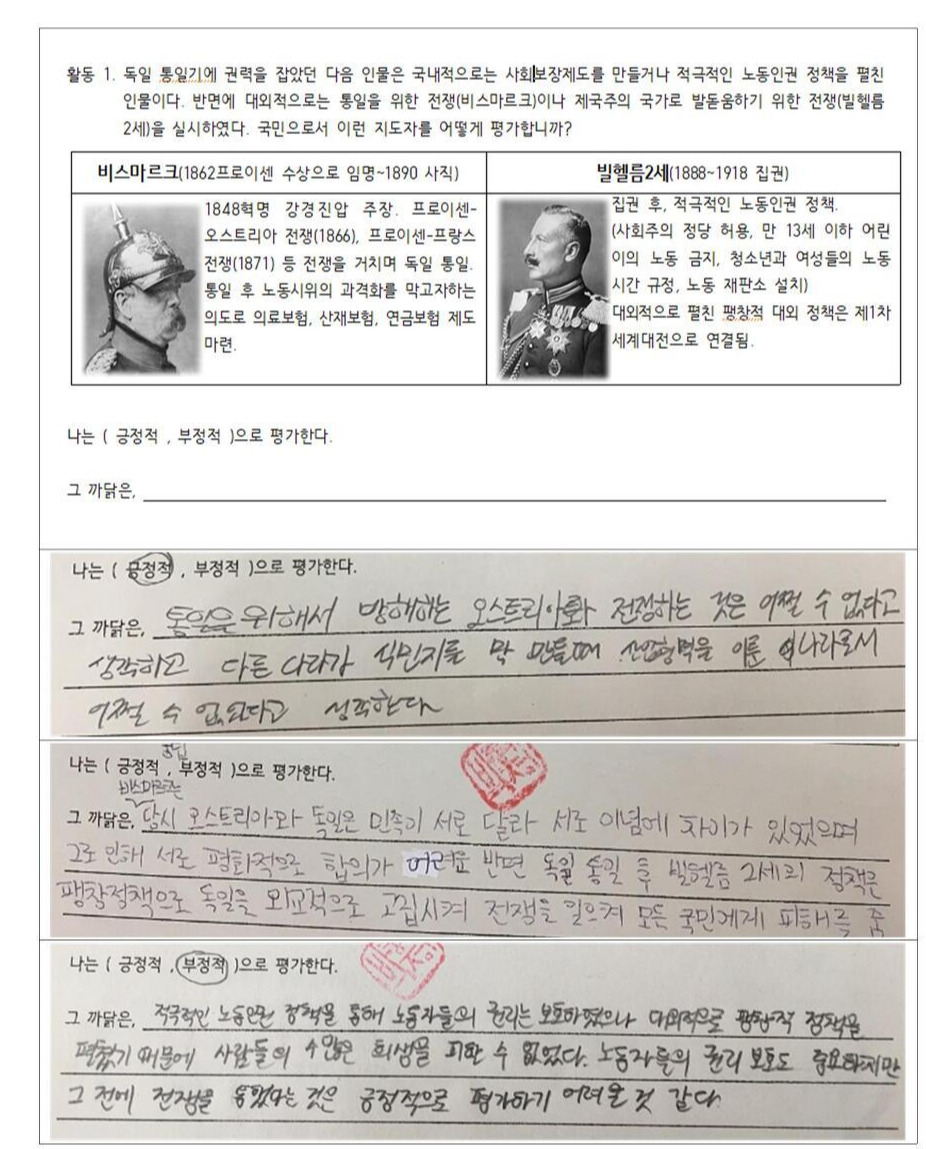 활동 1. 독일 통일기에 권력을 잡았던 다음 인물은 국내적으로는 사회보장제도를 만들거나 적극적인 노동인권 정책을 펼친
인물이다. 반면에 대외적으로는 통일을 위한 전쟁(비스마르크)이나 제국주의 국가로 발돋움하기 위한 전쟁(빌헬름
2세)을 실시하였다. 국민으로서 이런 지도자를 어떻게 평가합니까?
비스마르크(1862프로이센 수상으로 임명~1890 사직)
1848혁명 강경진압 주장. 프로이센-
오스트리아 전쟁(1866), 프로이센-프랑스
전쟁(1871) 등 전쟁을 거치며 독일 통일.
통일 후 노동시위의 과격화를 막고자하는
의도로 의료보험, 산재보험, 연금보험 제도
마련.
빌헬름2세(1888~1918 집권)
집권 후, 적극적인 노동인권 정책.
(사회주의 정당 허용, 만 13세 이하 어린
이의 노동 금지, 청소년과 여성들의 노동
시간 규정, 노동 재판소 설치)
대외적으로 펼친 팽창적 대외 정책은 제1차
세계대전으로 연결됨.
나는 ( 긍정적 , 부정적 )으로 평가한다.
그 까닭은,
나는 ( 긍정적 , 부정적 )으로 평가한다.
그 까닭은, 통일을 위해서 방해하는 오스트리아와 전쟁하는 것은 어쩔 수 없다고
생각하고 다른 나라가 식민지를 막 만들때 산업혁명을 이룬 나라로서
어쩔 수 없었다고 생각한다
나는 ( 긍정적 , 부정적 )으로 평가한다.
중립
비스마르크는
그 까닭은, 당시 오스트리아와 독일은 민족이 서로 달라 서로 이념에 차이가 있었으며
그로 인해 서로 평화적으로 합의가 어려운 반면 독일 통일 후 빌헬름 2세의 정책은
팽창정책으로 독일을 외교적으로 고립시켜 전쟁을 일으켜 모든 국민에게 피해를 줌
나는 ( 긍정적 , 부정적 )으로 평가한다.
그 까닭은, 적극적인 노동인권 정책을 통해 노동자들의 권리는 보호하였으나 대외적으로 팽창적 정책을
펼쳤기 때문에 사람들의 수많은 희생을 피할 수 없었다. 노동자들의 권리 보호도 중요하지만
그 전에 전쟁을 했다는 것은 긍정적으로 평가하기 어려울 것 같다.